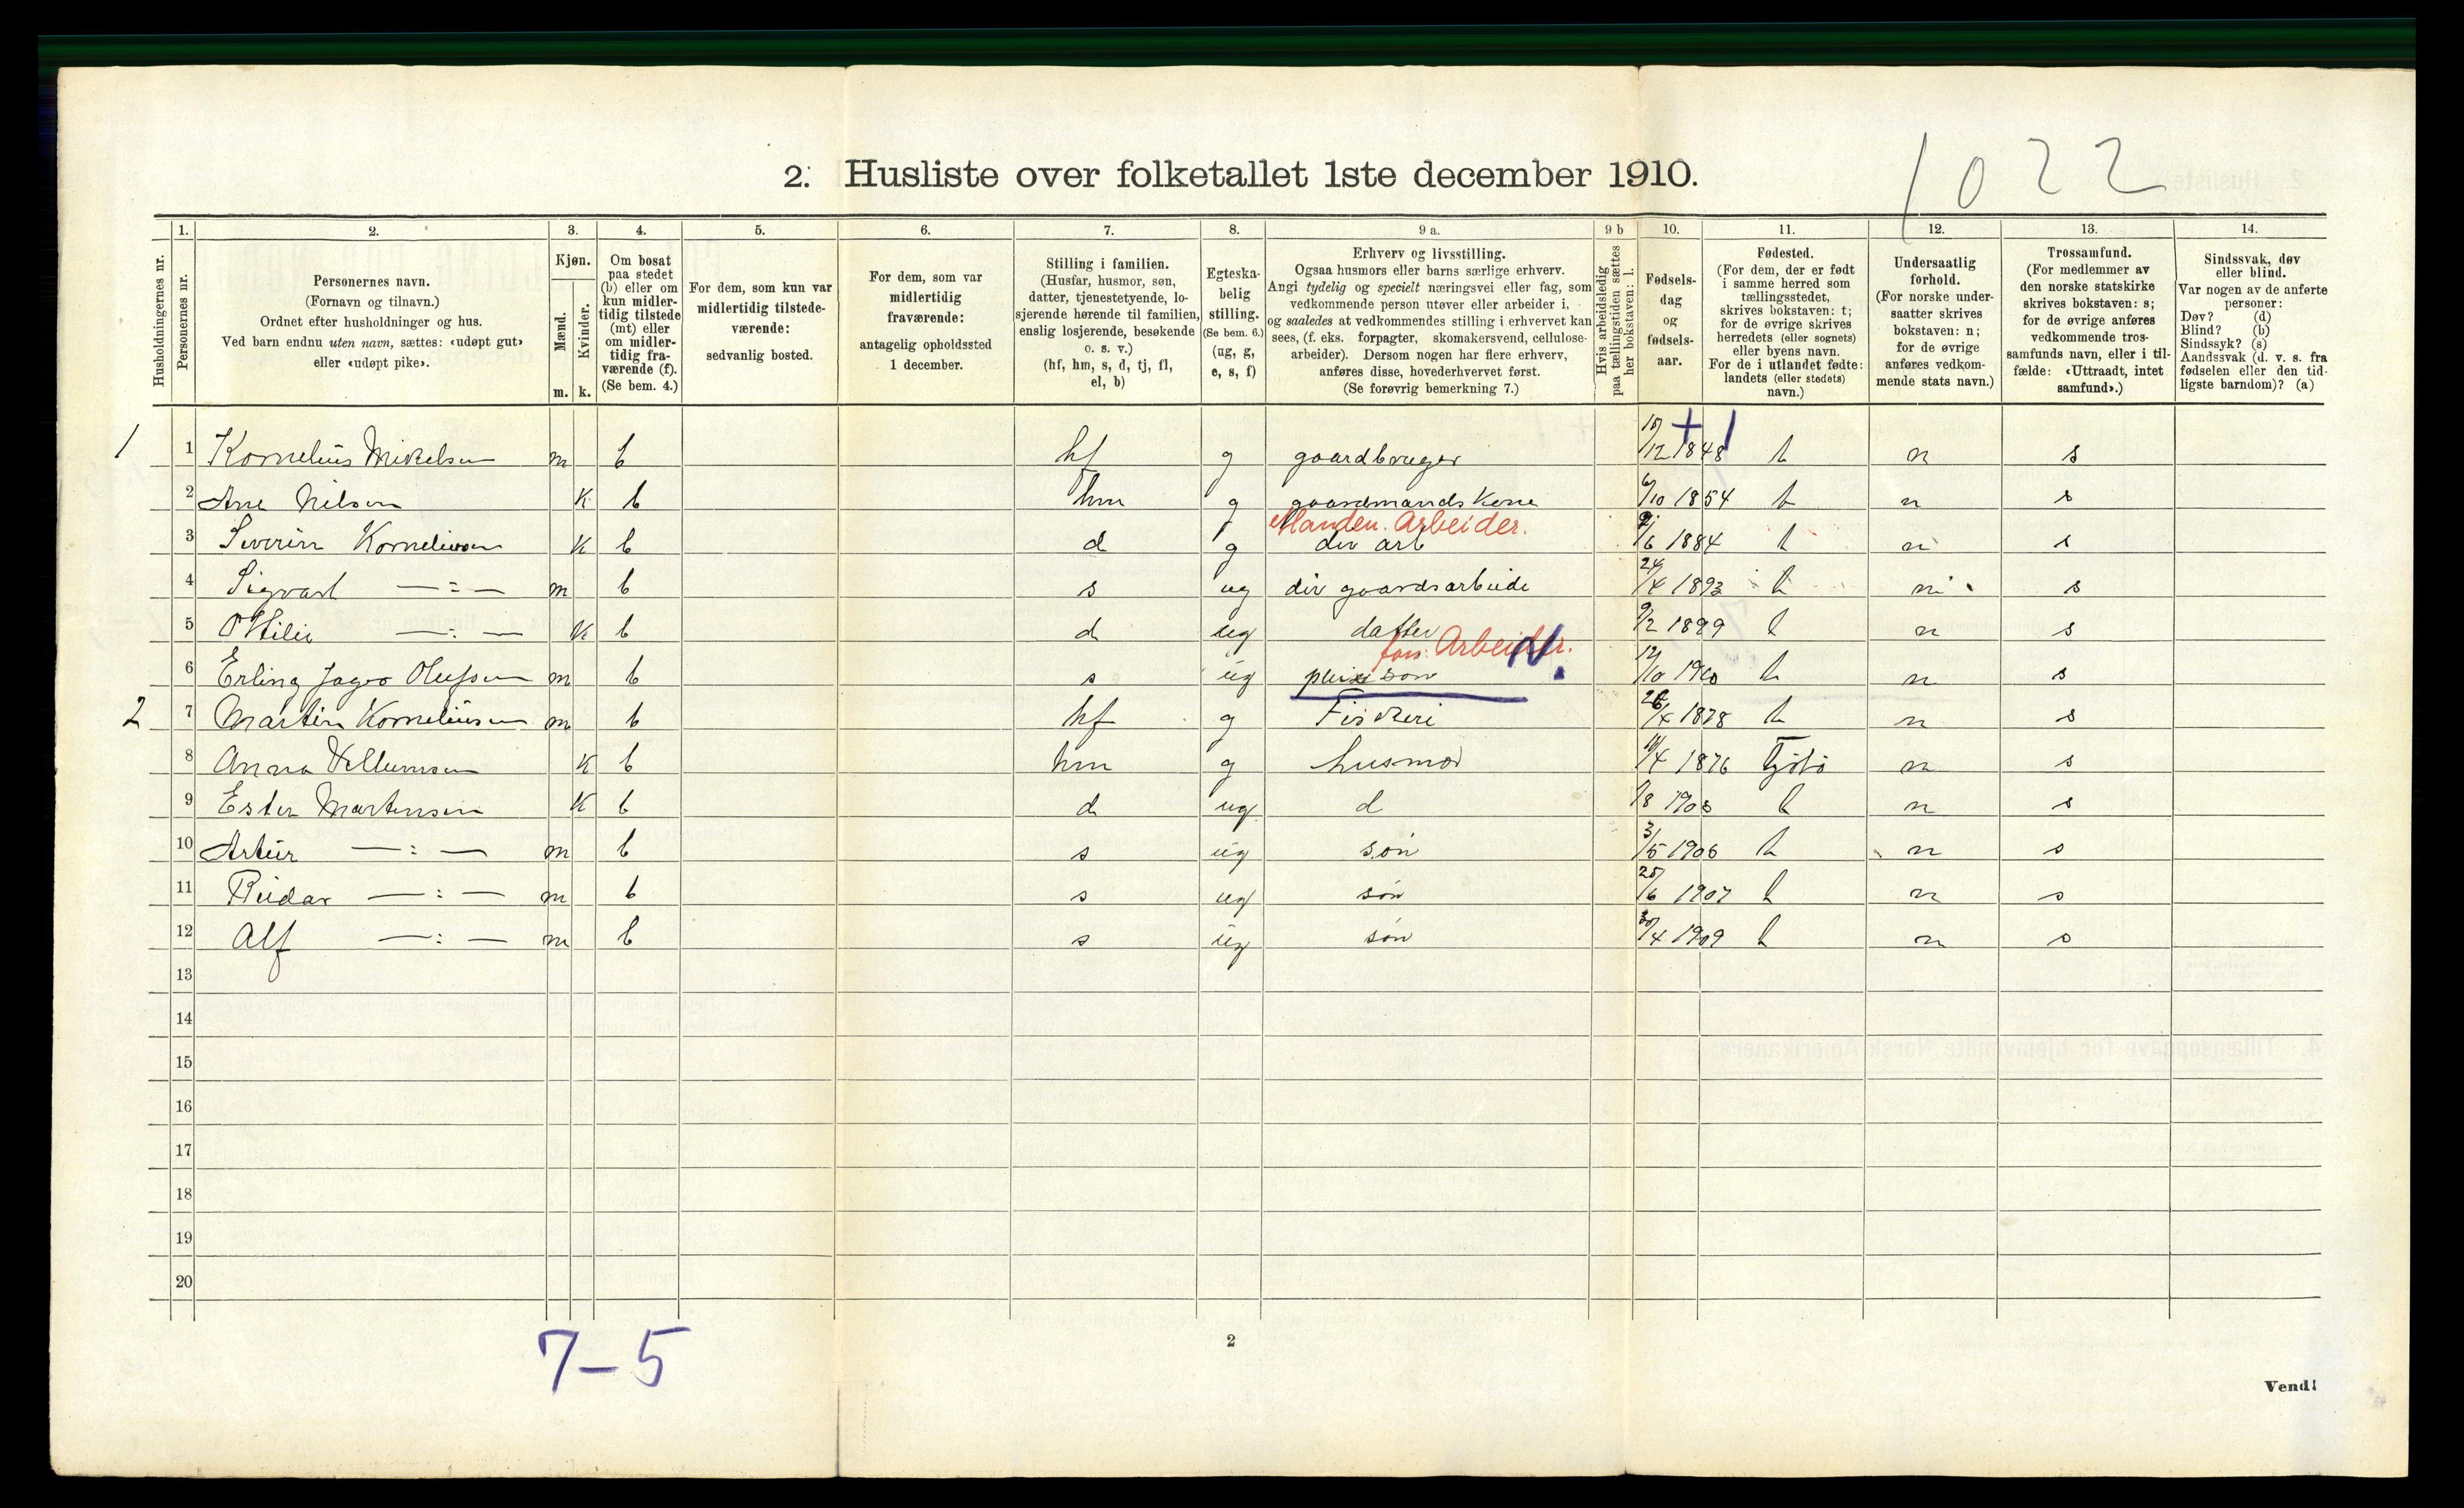 1022
2. Husliste over folketallet 1ste december 1910.
Husholdningernes nr.
1. Personernes nr.
2. Personernes navn.
(Fornavn og tilnavn.)
Ordnet efter husholdninger og hus.
Ved barn endnu uten navn, sættes: «udøpt gut»
eller «udøpt pike».
3. Kjøn.
Mænd. m.
Kvinder. k.
4. Om bosat
paa stedet
(b) eller om
kun midler-
tidig tilstede
(mt) eller
om midler-
tidig fra-
værende (f).
(Se bem. 4.)
5. For dem, som kun var
midlertidig tilstede-
værende:
sedvanlig bosted.
6. For dem, som var
midlertidig
fraværende:
antagelig opholdssted
1 december.
7. Stilling i familien.
(Husfar, husmor, søn,
datter, tjenestetyende, lo-
sjerende hørende til familien,
enslig losjerende, besøkende
o. s. v.)
(hf, hm, s, d, tj, fl,
el, b)
8. Egteska-
belig
stilling.
(Se bem. 6.)
(ug, g,
e, s, f)
9 a. Erhverv og livsstilling.
Ogsaa husmors eller barns særlige erhverv.
Angi tydelig og specielt næringsvei eller fag, som
vedkommende person utøver eller arbeider i,
og saaledes at vedkommendes stilling i erhvervet kan
sees, (f. eks. forpagter, skomakersvend, cellulose-
arbeider). Dersom nogen har flere erhverv,
anføres disse, hovederhvervet først.
(Se forøvrig bemerkning 7.)
9 b Hvis arbeidsledig
paa tællingstiden sættes
her bokstaven: l.
10. Fødsels-
dag
og
fødsels-
aar.
11. Fødested.
(For dem, der er født
i samme herred som
tællingsstedet,
skrives bokstaven: t;
for de øvrige skrives
herredets (eller sognets)
eller byens navn.
For de i utlandet fødte:
landets (eller stedets)
navn.)
12. Undersaatlig
forhold.
(For norske under-
saatter skrives
bokstaven: n;
for de øvrige
anføres vedkom-
mende stats navn.)
13. Trossamfund.
(For medlemmer av
den norske statskirke
skrives bokstaven: s;
for de øvrige anføres
vedkommende tros-
samfunds navn, eller i til-
fælde: «Uttraadt, intet
samfund».)
14. Sindssvak, døv
eller blind.
Var nogen av de anførte
personer:
Døv? (d)
Blind? (b)
Sindssyk? (s)
Aandssvak (d. v. s. fra
fødselen eller den tid-
ligste barndom)? (a)
1 1 Kornelius Mikelsen m b hf g gaardbruger /12 1848 t n s
2 Ane Nilsen K b hm g gaardmands Kone 6/10 1854 t n s
Manden. Arbeider.
3 Severin Korneliusen K b d g div arb /6 1884 t n s
4 Sigvart —:— m b s ug div gaardsarbeide 24/4 1893 t n s
5 Ottilie —:— K b d ug datter 9/2 1899 t n s
fors. Arbeider.
6 Erling Olufsen m b s ug pleie søn 12/10 t n s
2 7 Martin Korneliusen m b hf g Fiskeri 26/4 1878 t n s
8 Anna Vellumsen K b hm g husmor 10/4 1876 Tjøtø n s
9 Ester Martinsen K b d ug d /8 t n s
10 Artur —:— m b s ug søn 3/5 1906 t n s
11 Reidar —:— m b s ug søn 25/6 1907 t n s
12 Alf —:— m b s ug søn 30/4 1909 t n s
13
14
15
16
17
18
19
20
7–5
2
Vend!